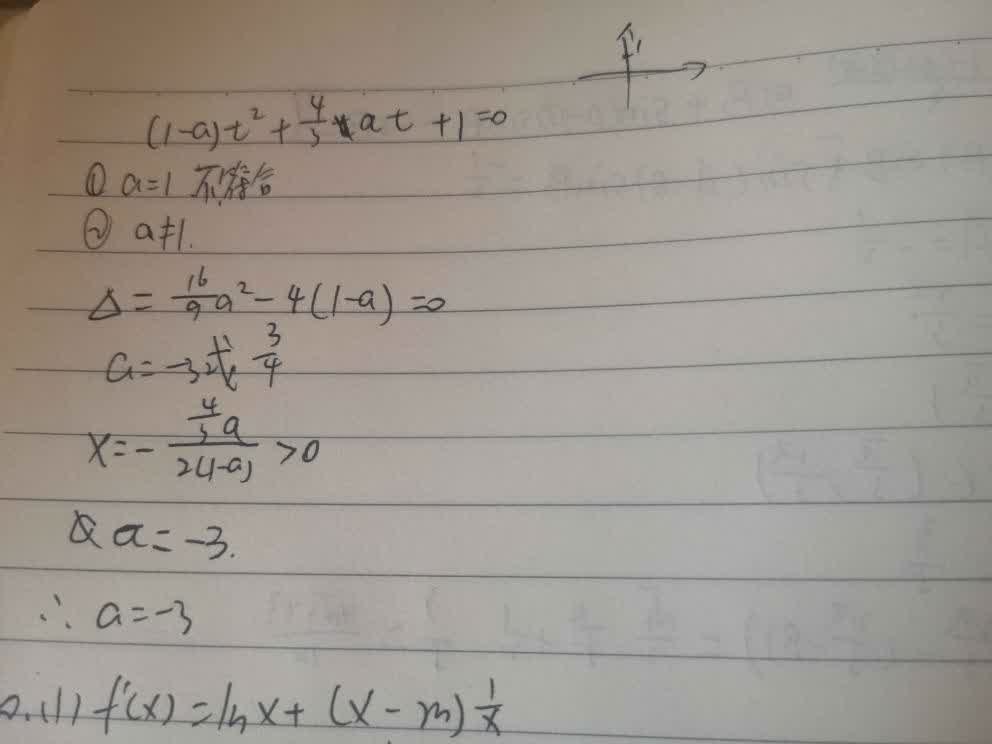 (1-a)t² + 4/3 at + 1 = 0
① a=1 不符合
② a≠1.
Δ = 16/9 a² - 4(1-a) = 0
a = -3 或 3/4
X = - (4/3 a)/(2(1-a)) > 0
a = -3.
∴ a = -3
(1) f'(x) = ln x + (x - m) 1/x